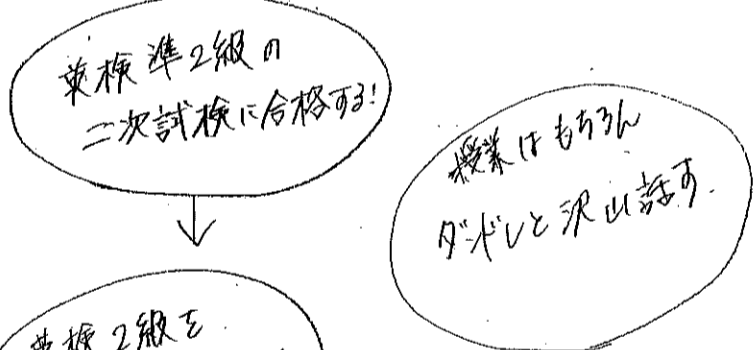 英検準2級の
二次試検に合格する!
授業はもちろん
ダンドレと沢山話す.
英検2級を